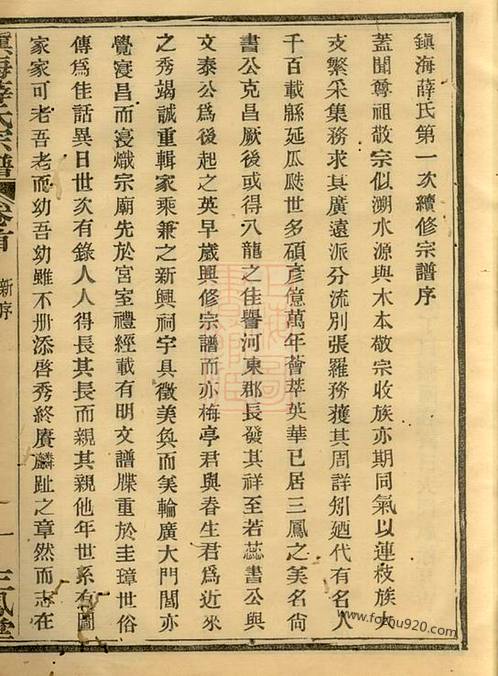 鎮海薛氏第一次續修宗譜序
蓋聞尊祖敬宗似溯水源與木本敬宗收族亦期同氣以連枝族大
支繁采集務求其廣遠派分流別張羅務獲其周詳矧廼代有名人
千百載緜延瓜瓞世多碩彥億萬年薈萃英華已居三鳳之美名尙
書公克昌厥後或得八龍之佳譽河東郡長發其祥至若蕊書公與
文泰公爲後起之英早歲興修宗譜而亦梅亭君與春生君爲近來
之秀竭誠重輯家乘兼之新興祠宇具徵美奐而美輪廣大門閭亦
覺寖昌而寖熾宗廟先於宮室禮經載有明文譜牒重於圭璋世俗
傳爲佳話異日世次有錄人人得長其長而親其親他年世系有圖
家家可老吾老而幼吾幼雖不册添啓秀終賡麟趾之章然而志在
鎮海薛氏宗譜 卷首 新序 一 三鳳堂
www.foizhu920.com